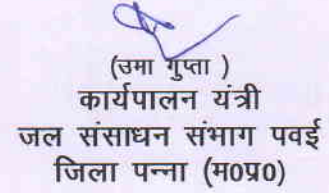 (उमा गुप्ता )
कार्यपालन यंत्री
जल संसाधन संभाग पवई
जिला पन्ना (म0प्र0)